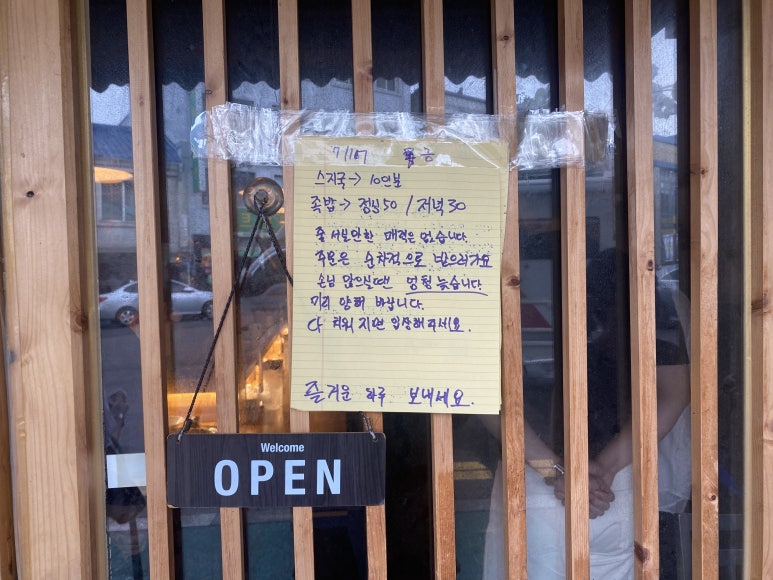 7/167 금
스지국→ 10인분
족밥→ 점심50 / 저녁30
줄 서실만한 매력은 없습니다.
주문은 순차적으로 받으러가요
손님 많으실땐 엄청 늦습니다.
미리 양해 바랍니다.
다 치워 지면 입장해주세요.
즐거운 하루 보내세요.
Welcome
OPEN